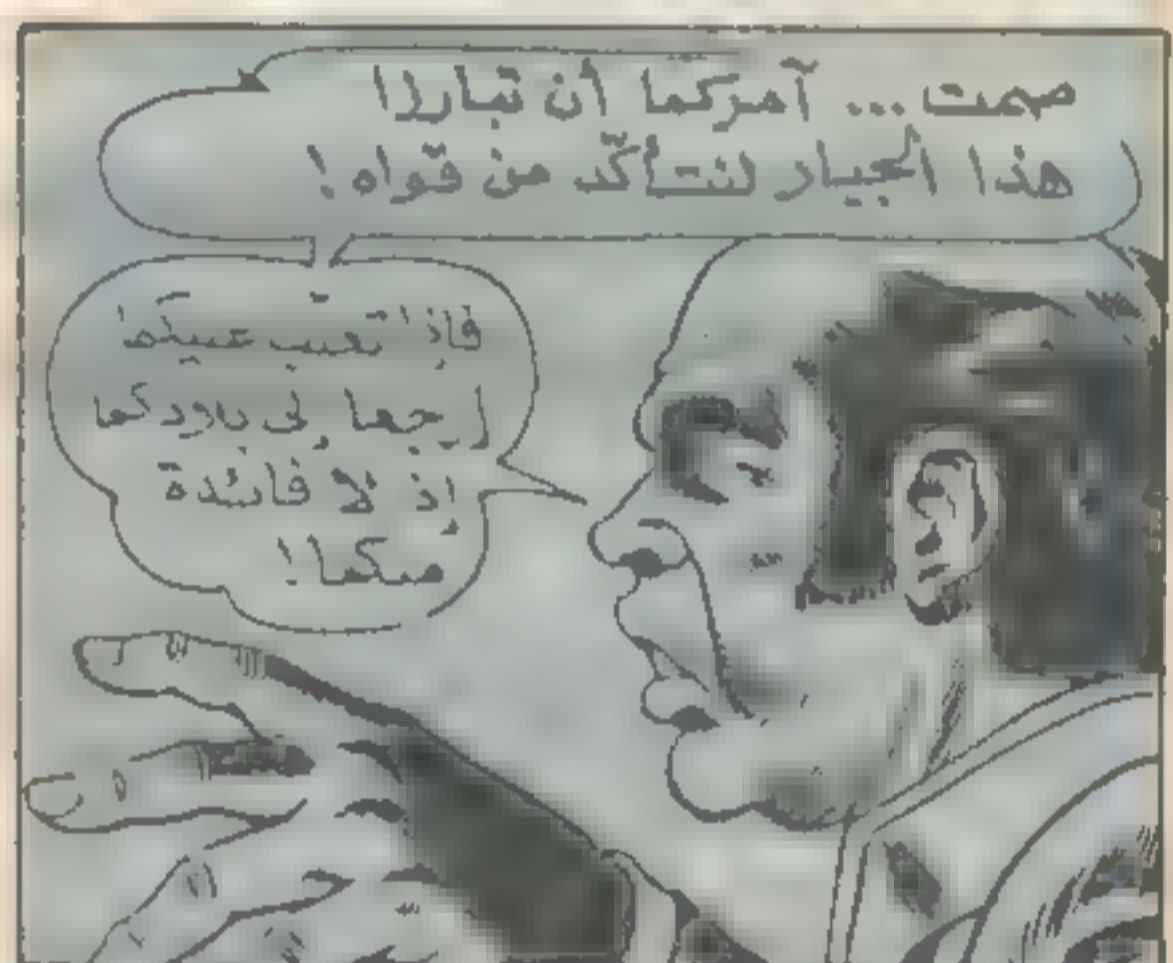 صمت... آمركما أن تبارزا
هذا الجبار لنتأكّد من قواه!
فإذا تغلب عليكما
إرجعا إلى بلادكما
إذ لا فائدة
منكما!